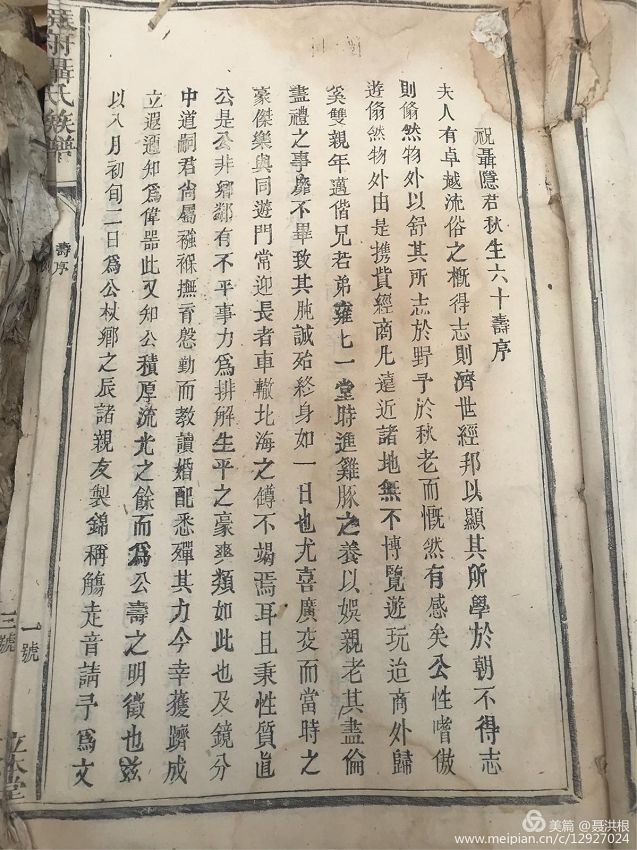 祝聶隱君秋生六十壽序
夫人有卓越流俗之概得志則濟世經邦以顯其所學於朝不得志
則翛然物外以舒其所志於野予於秋老而慨然有感矣公性嗜傲
遊翛然物外由是携貲經商凡遠近諸地無不博覽遊玩迨商外歸
奚雙親年邁偕兄若弟雍七一堂時進雞豚之養以娛親老其盡倫
盡禮之事靡不畢致其肫誠始終身如一日也尤喜廣交而當時之
豪傑樂與同遊門常迎長者車轍北海之罇不竭焉耳且秉性質直
公是公非鄉鄰有不平事力為排解生平之豪爽類如此也及鏡分
中道嗣君尚屬襁褓撫育慇勤而教讀婚配悉殫其力今幸獲躋成
立遐邇知為偉器此又知公積厚流光之餘而為公壽之明徵也茲
以八月初旬二日為公杖鄉之辰諸親友製錦稱觴走音請予為文
聶氏族譜
壽序
一號
三號
立本堂
美篇 @聂洪根
www.meipian.cn/c/12927024